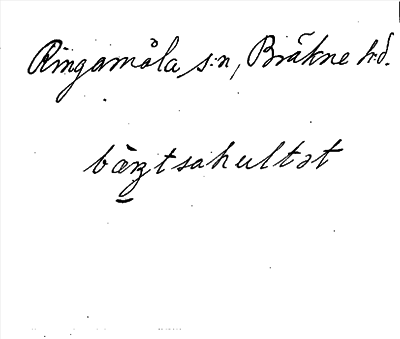 Ringamåla s:n, Bräkne hd.
bæ̀ʒtsahultət